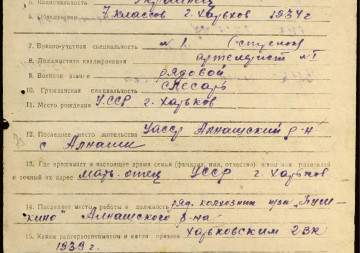 5. Национальность Украинец
6. Образование 7 классов г. Харьков 1934 г
7. Военно-учетная специальность № 1
артиллерист № 1
8. Должностная квалификация
9. Военское звание рядовой
10. Гражданская специальность слесарь
11. Место рождения УССР г. Харьков
12. Последнее место жительства УАССР Алнашский р-н
с Алнаши
13. Где проживает в настоящее время семья (фамилия, имя, отчество)
и точный их адрес мать, отец УССР г. Харьков
14. Последнее место работы и должность ряд. колхозник к-за "Пуш-
кино" Алнашского р-на
15. Каким райвоенкоматом и когда призван Харьковским ГВК
1939 г.